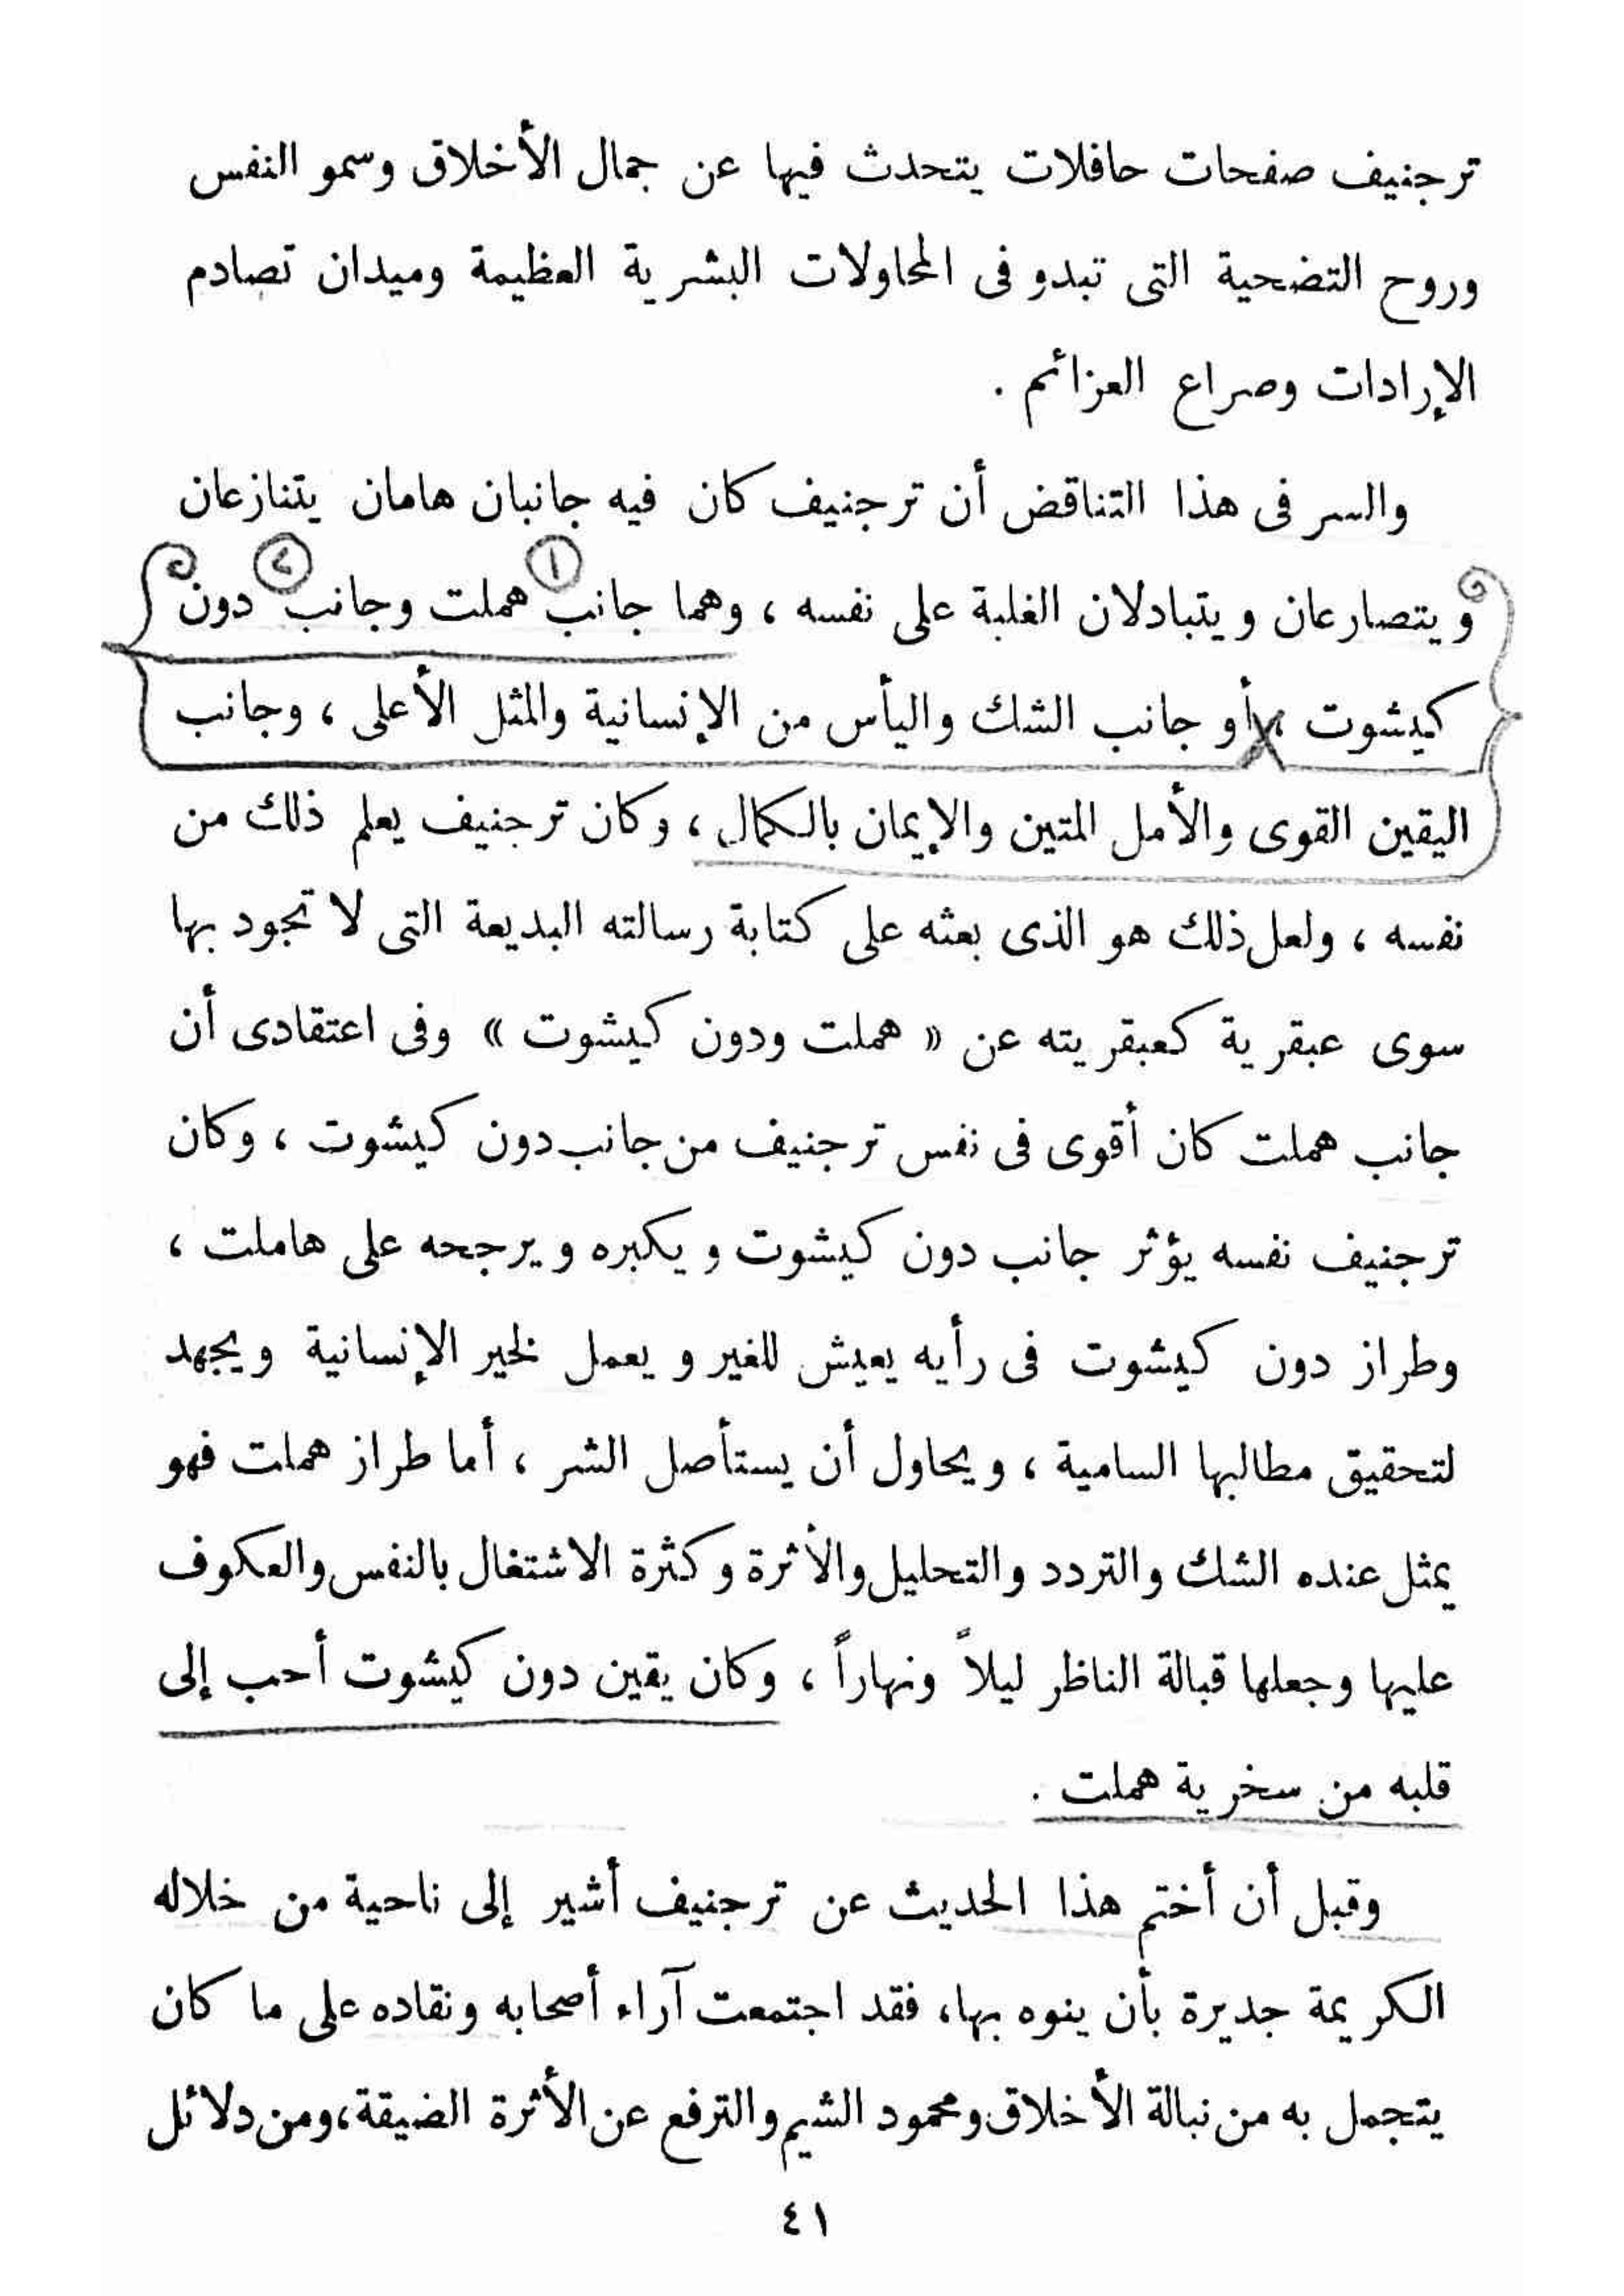 ترجنيف صفحات حافلات يتحدث فيها عن جمال الأخلاق وسمو النفس
وروح التضحية التى تبدو فى المحاولات البشرية العظيمة وميدان تصادم
الإرادات وصراع العزائم .
والسر فى هذا التناقض أن ترجنيف كان فيه جانبان هامان يتنازعان
١ ٢
ويتصارعان ويتبادلان الغلبة على نفسه ، وهما جانب هملت وجانب دون
كيشوت ، أو جانب الشك واليأس من الإنسانية والمثل الأعلى ، وجانب
اليقين القوى والأمل المتين والإيمان بالكمال ، وكان ترجنيف يعلم ذلك من
نفسه ، ولعل ذلك هو الذى بعثه على كتابة رسالته البديعة التى لا تجود بها
سوى عبقرية كعبقريته عن « هملت ودون كيشوت » وفى اعتقادى أن
جانب هملت كان أقوى فى نفس ترجنيف من جانب دون كيشوت ، وكان
ترجنيف نفسه يؤثر جانب دون كيشوت ويكبره ويرجحه على هاملت ،
وطراز دون كيشوت فى رأيه يعيش للغير ويعمل لخير الإنسانية ويجهد
لتحقيق مطالبها السامية ، ويحاول أن يستأصل الشر ، أما طراز هملت فهو
يمثل عنده الشك والتردد والتحليل والأثرة وكثرة الاشتغال بالنفس والعكوف
عليها وجعلها قبالة الناظر ليلاً ونهاراً ، وكان يقين دون كيشوت أحب إلى
قلبه من سخرية هملت .
وقبل أن أختم هذا الحديث عن ترجنيف أشير إلى ناحية من خلاله
الكريمة جديرة بأن ينوه بها، فقد اجتمعت آراء أصحابه ونقاده على ما كان
يتجمل به من نبالة الأخلاق ومحمود الشيم والترفع عن الأثرة الضيقة، ومن دلائل
٤١